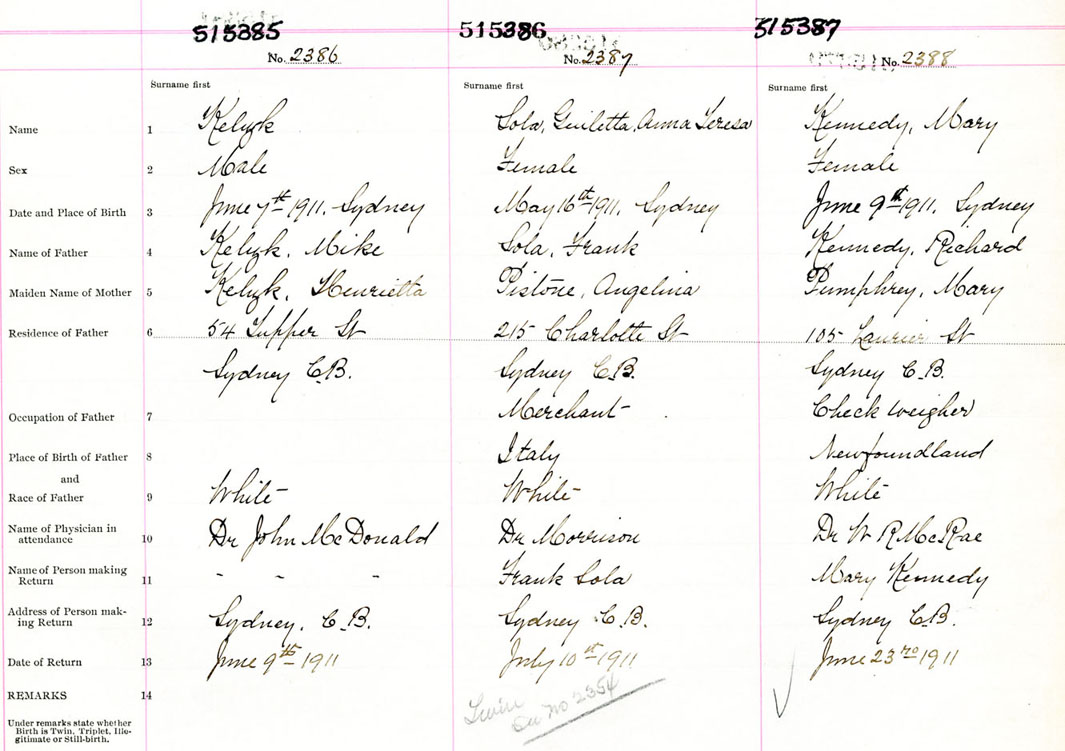 515385 515386 515387
No. 2386 No. 2387 No. 2388
Surname first Surname first Surname first
Name 1 Kelyk Sola, Guiletta, Anna Teresa Kennedy, Mary
Sex 2 Male Female Female
Date and Place of Birth 3 June 7th 1911. Sydney May 16th 1911. Sydney June 9th 1911. Sydney
Name of Father 4 Kelyk. Mike Sola, Frank Kennedy, Richard
Maiden Name of Mother 5 Kelyk. Henrietta Pistone, Angelina Pumphrey, Mary
Residence of Father 6 54 Tupper St 215 Charlotte St 105 Laurier St
Sydney C.B. Sydney C.B. Sydney C.B.
Occupation of Father 7 Merchant Check weigher
Place of Birth of Father 8 Italy Newfoundland
and
Race of Father 9 White White White
Name of Physician in
attendance 10 Dr John McDonald Dr Morrison Dr W R McRae
Name of Person making
Return 11 - - - Frank Sola Mary Kennedy
Address of Person mak-
ing Return 12 Sydney, C.B. Sydney C.B. Sydney C.B.
Date of Return 13 June 9th 1911 July 10th 1911 June 23rd 1911
REMARKS 14 Twin
On No 2354
Under remarks state whether
Birth is Twin, Triplet, Ille-
gitimate or Still-birth.